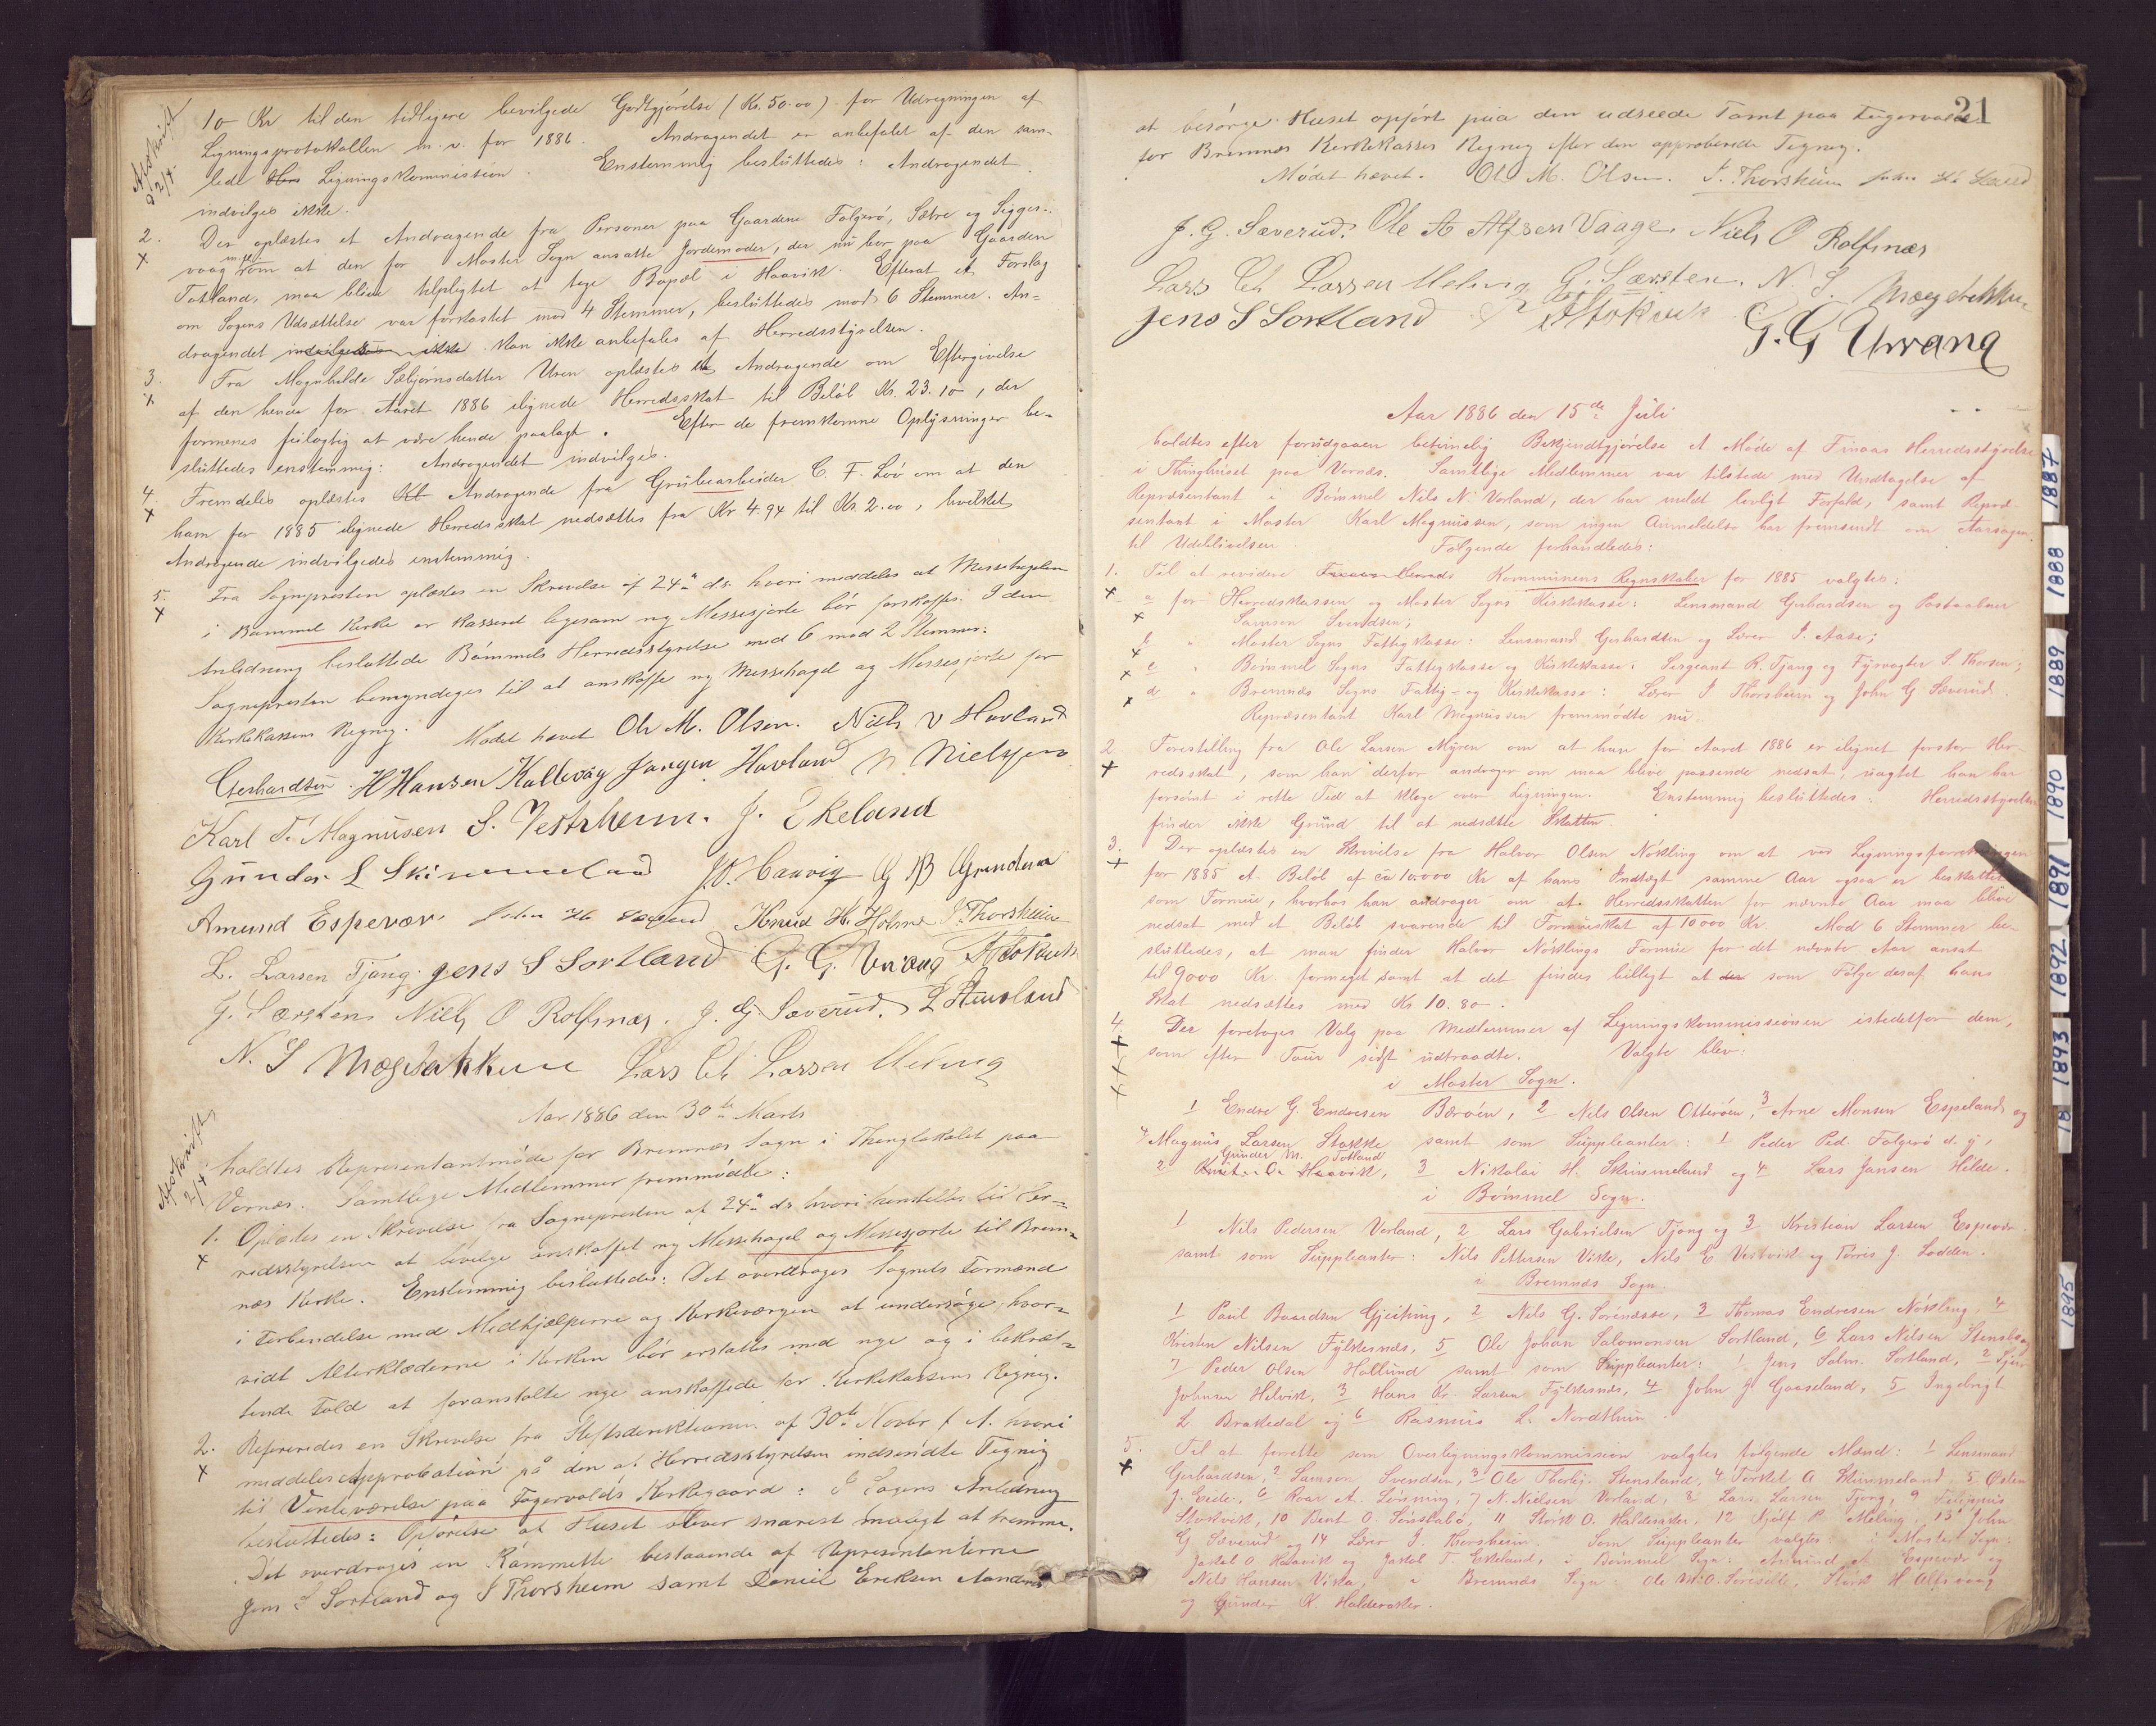 Afskrift
2/4.
10 Kr til den tidligere bevilgede Godtgjørelse (Kr. 50.00) for Udregningen af
Ligningsprotokollen m. v. for 1886. Andragendet er anbefalet af den sam-
lede Ligningskommission. Enstemmig besluttedes: Andragendet
indvilges ikke.
2. Der oplæstes et Andragende fra Personer paa Gaardene Folgerö, Sætre og Sigger-
x vaag m. fl. om at den for Moster Sogn ansatte Jordemoder, der nu bor paa Gaarden
Totland, maa blive tilpligtet at tage Bopæl i Haavik. Efterat et Forslag
om Sagens Udsættelse var forkastet mod 4 Stemmer, besluttedes mod 6 Stemmer. An-
dragendet indvilgedes ikke kan ikke anbefales af Herredsstyrelsen.
3. Fra Magnhilde Sæbjørnsdatter Uren oplæstes et Andragende om Eftergivelse
x af den hende for Aaret 1886 ilignede Herredsskat til Beløb Kr. 23.10, der
formenes feilagtig at være hende paalagt. Efter de fremkomne Oplysninger be-
sluttedes enstemmig: Andragendet indvilges.
4. Fremdeles oplæstes Andragende fra Grubearbeider C. F. Löv om at den
x ham for 1885 ilignede Herredsskat nedsættes fra Kr 4.94 til Kr. 2.00, hvilket
Andragende indvilgedes enstemmig.
5. Fra Sognepresten oplæstes en Skrivelse af 24de ds. hvori meddeles at Messehagelen
x i Bømmel Kirke er kasseret ligesom ny Messesjorte bør forskaffes. I den
Anledning besluttede Bömmels Herredsstyrelse med 6 mod 2 Stemmer:
Sognepresten bemyndeges til at anskaffe ny Messehagel og Messesjorte for
Kirkekassens Regnig. Mødet hævet Ole M. Olsen. Niels N Havland
Gerhardsen. H Hansen Kallevåg Jørgen Havland N. Nielsen
Karl T. Magnusen S. Vestrheim. J. Ekeland
Gunder L Skimmeland
Amund Espevær. Knud H. Holme J. Thorsheim
L. Larsen Tjong. Jens S Sortland G. G. Urrang A Stokvik
G. Særsten Niels O Rolfsnæs. J. G. Sæverud. L Stensland
N. S Mægdehkun Lars Ch Larsen Meling
Afskrift
2/4
Aar 1886 den 30te Marts
holdtes Representantmøde for Bremnes Sogn i Thinglokalet paa
Vornæs. Samtlige Medlemmer fremmødte:
1. Oplæstes en Skrivelse fra Sognepresten af 24de ds. hvori henstilles til Her-
x redsstyrelsen at bevilge anskaffet ny Messehagel og Messesjorte til Brem-
næs Kirke. Enstemmig besluttedes: Det overdrages Sognets Formænd
i Forbindelse med Medhjælperne og Kirkeværgen at undersøge, hvor-
vidt Alterklæderne i Kirken bør erstattes med nye og i bekræf-
tende Fald at foranstalte nye anskaffede for Kirkekassens Regnig.
2. Refereredes en Skrivelse fra Stiftsdirektionen af 30te Novbr f. A. hvori
x meddeles Approbation på den af Herredsstyrelsen indsendte Tegnig
til Venteværelse paa Fagervolds Kirkegaard: I Sagens Anledning
besluttedes: Opførelse af Huset bliver snarest muligt at fremme.
Det overdroges en Kommitte bestaaende af Representanterne
Jens S Sortland og J Thorsheim samt Daniel Eriksen Aanders
21
at besørge Huset opført paa den udseede Tomt paa Fagervold
for Bremnes Kirkekasses Regnig efter den approberede Tegnig.
Mødet hævet. Ole M. Olsen. J. Thorsheim
J. G. Sæverud. Ole A Alfsen Vaage. Niels O Rolfsnæs
Lars Ch Larsen Meling G. Særsten. N. S. Mægdehkun
Jens S Sortland A Stokvik
G. G Urrang
Aar 1886 den 15de Juli
holdtes efter forudgaaen betimelig Bekjendtgjørelse et Møde af Finaas Herredsstyrelse
i Thinghuset paa Vornæs. Samtlige Medlemmer var tilstede med Undtagelse af
Repræsentant i Bömmel Nils N. Vorland, der har meldt lovligt Forfald, samt Repræ-
sentant i Moster Karl Magnussen, som ingen Anmeldelse har fremsendt om Aarsagen
til Udeblivelsen. Følgende forhandledes:
1. Til at revidere Kommunens Regnskaber for 1885 valgtes:
x a for Herredskassen og Moster Sogns Kirkekasse: Lensmand Gerhardsen og Postaabner
x Samson Svendsen;
b " Moster Sogns Fattigkasse: Lensmand Gerhardsen og Lærer P. Aase;
x c " Bömmel Sogns Fattigkasse og Kirkekasse: Sergeant R. Tjong og Fyrvogter S. Thorsen;
x d " Bremnæs Sogns Fattig- og Kirkekasse: Lærer J Thorsheim og John G Sæverud.
x Repræsentant Karl Magnussen fremmødte nu.
2. Forestilling fra Ole Larsen Myren om at han for Aaret 1886 er ilignet forstor Her-
x redsskat, som han derfor andrager om maa blive passende nedsat, uagtet han har
forsømt i rette Tid at klage over Ligningen. Enstemmig besluttedes: Herredsstyrelsen
finder ikke Grund til at nedsætte Skatten.
3. Der oplæstes en Skrivelse fra Halvor Olsen Nökling om at ved Ligningsforretningen
x for 1885 et Beløb af ca 10.000 Kr af hans Indtægt samme Aar ogsaa er beskattet
som Formue, hvorhos han andrager om at Herredsskatten for nævnte Aar maa blive
nedsat med et Beløb svarende til Formueskat af 10000 Kr. Mod 6 Stemmer be-
sluttedes, at man finder Halvor Nöklings Formue for det nævnte Aar ansat
til 9000 Kr. formeget samt at det findes billigt at som Følge deraf hans
Skat nedsættes med Kr. 10.80.
4. Der foretoges Valg paa Medlemmer af Ligningskommissionen istedetfor dem,
x som efter Tour sidst udtraadte. Valgte blev:
i Moster Sogn.
1 Endre G. Endresen Bærøen, 2 Nils Olsen Otterøen, 3 Arne Monsen Espeland og
4 Magnus Larsen Stokke samt som Suppleanter: 1 Peder Ped. Folgerö d. y.,
2 Gunder M. Totland, 3 Nikolai H. Skimmeland og 4 Lars Jansen Hilde.
i Bömmel Sogn.
1 Nils Pedersen Vorland, 2 Lars Gabrielsen Tjong og 3 Kristian Larsen Espevær
samt som Suppleanter: Nils Pettersen Vike, Nils E. Vestvik og Torris J. Lodden.
i Bremnæs Sogn.
1 Paul Baardsen Gjeitung, 2 Nels G. Sørendsse, 3 Thomas Endresen Nökling, 4
Kristen Nilsen Fylkesnæs, 5 Ole Johan Salomonsen Sortland, 6 Lars Nilsen Stensbø
7 Peder Olsen Hollund samt som Suppleanter: 1 Jens Salm. Sortland, 2
Johnsen Helvik, 3 Hans Ol. Larsen Fylkesnæs, 4 John J Gaaseland, 5 Ingebrigt
L Brakedal og 6 Rasmus L. Nordthun.
5. Til at forrette som Overligningskommission valgtes følgende Mænd: 1 Lensmand
x Gerhardsen, 2 Samson Svendsen, 3 Ole Thorbj. Stensland, 4 Torkel A Skimmeland, 5 Østen
J. Eide, 6 Roar A. Løvning, 7 N. Nielsen Vorland, 8 Lars Larsen Tjong, 9
Stokvik, 10 Bent O. 11 Størk O. Halderaker, 12 P Meling, 13 John
G Sæverud og 14 Lærer J. Thorsheim. Som Suppleanter valgtes: i Moster Sogn:
Jakob O Haavik og Jakob T. Ekeland, i Bömmel Sogn: Amund Espevær og
Nils Hansen Vika, i Bremnæs Sogn: Størk H Alfsvaag
og Gunder K. Halderaker.
1887
1888
1889
1890
1891
1892
1893
18
1895